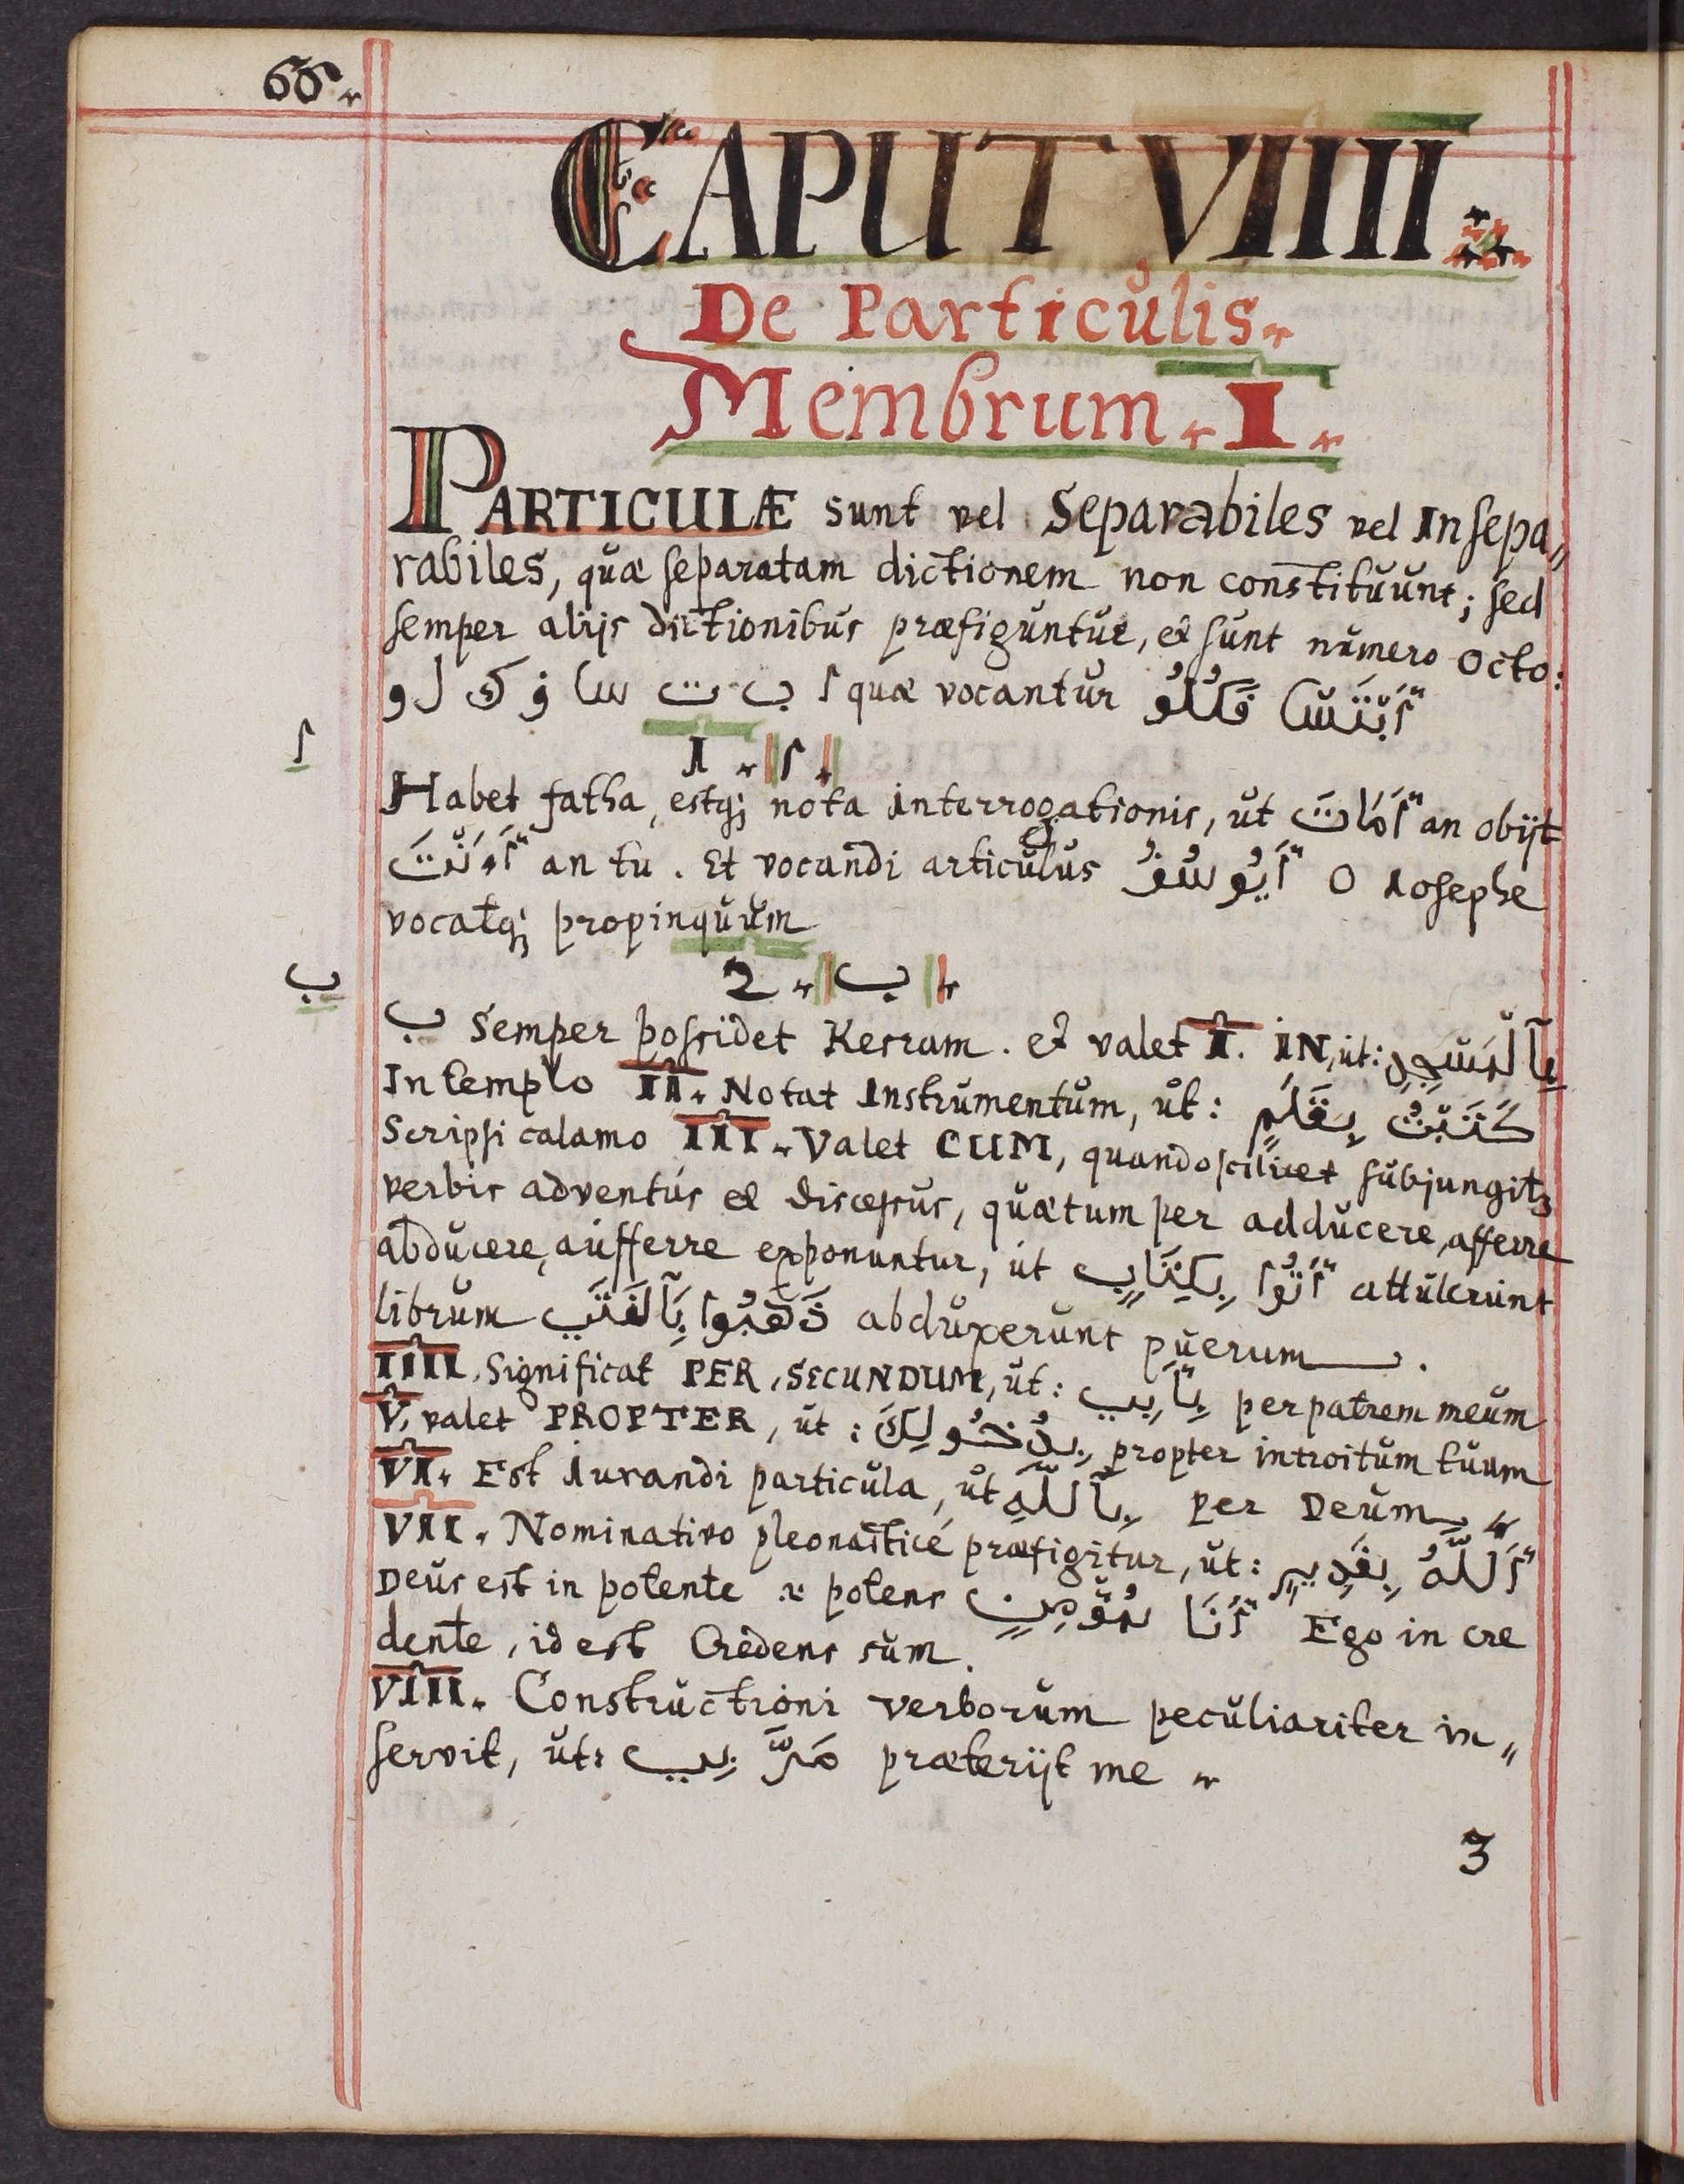 66.
CAPUT VIIII.
De Particulis.
Membrum. I.
PARTICULÆ sunt vel Separabiles vel Insepa„
rabiles, quæ separatam dictionem non constituunt; sed
semper aliis dictionibus præfiguntur, et sunt numero octo:
ا ب ت سا ف ك ل و quæ vocantur أَبْتَسَا فَكُلُو
ا
1. ا.
Habet fatha, estq; nota interrogationis, ut أَمَاتَ an obijt
أَوَنْتَ an tu. Et vocandi articulus أَيُوسُفُ O Iosephe
vocatq; propinquum
ب
2. ب.
ب semper possidet Kesram. et valet I. IN, ut: بِآلْمَسْجِدِ
In templo II. Notat Instrumentum, ut: كَتَبْتُ بِقَلَمٍ
Scripsi calamo III. Valet CUM, quando scilicet subjungitz
verbis adventus et discessus, quæ tum per adducere, afferre
abducere, aufferre exponuntur, ut أَتَوُا بِكِتَابٍ attulerunt
librum ذَهَبُوا بِآلفَتَي abduxerunt puerum.
IIII. Significat PER, SECUNDUM, ut: بِأَبِي per patrem meum
V. valet PROPTER, ut: بِدُخُولِكَ propter introitum tuum
VI. Est Iurandi particula, ut بِآللَّهِ per Deum.
VII. Nominativo pleonasticé præfigitur, ut: أَللَّهُ بِقَدِيرٍ
Deus est in potente i: potens أَنَا بمُؤْمِنٍ Ego in cre
dente, id est Credens sum.
VIII. Constructioni verborum peculiariter in„
servit, ut: مَرَّ بِي præterijt me.
3